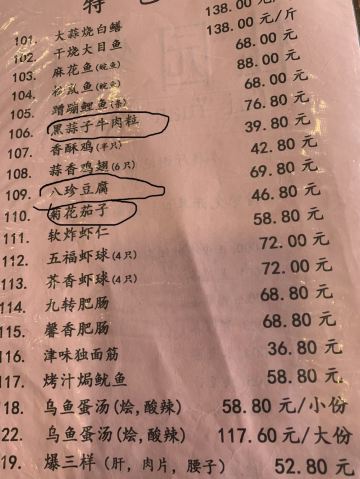 特
101. 大蒜烧白鳝 138.00 元/
102. 干烧大目鱼 138.00 元/斤
103. 麻花鱼(鲩鱼) 68.00 元
104. 鱼(鲩鱼) 88.00 元
105. 蹭蹦鲤鱼(条) 68.00 元
106. 黑蒜子牛肉粒 76.80 元
107. 香酥鸡(半只) 39.80 元
108. 蒜香鸡翅(6只) 42.80 元
109. 八珍豆腐 69.80 元
110. 菊花茄子 46.80 元
111. 软炸虾仁 58.80 元
112. 五福虾球(4只) 72.00 元
113. 芥香虾球(4只) 72.00 元
114. 九转肥肠 68.80 元
115. 馨香肥肠 68.80 元
116. 津味独面筋 36.80 元
117. 烤汁焗鱿鱼 58.80 元
18. 乌鱼蛋汤(烩,酸辣) 58.80 元/小份
22. 乌鱼蛋汤(烩,酸辣) 117.60 元/大份
19. 爆三样(肝,肉片,腰子) 52.80 元